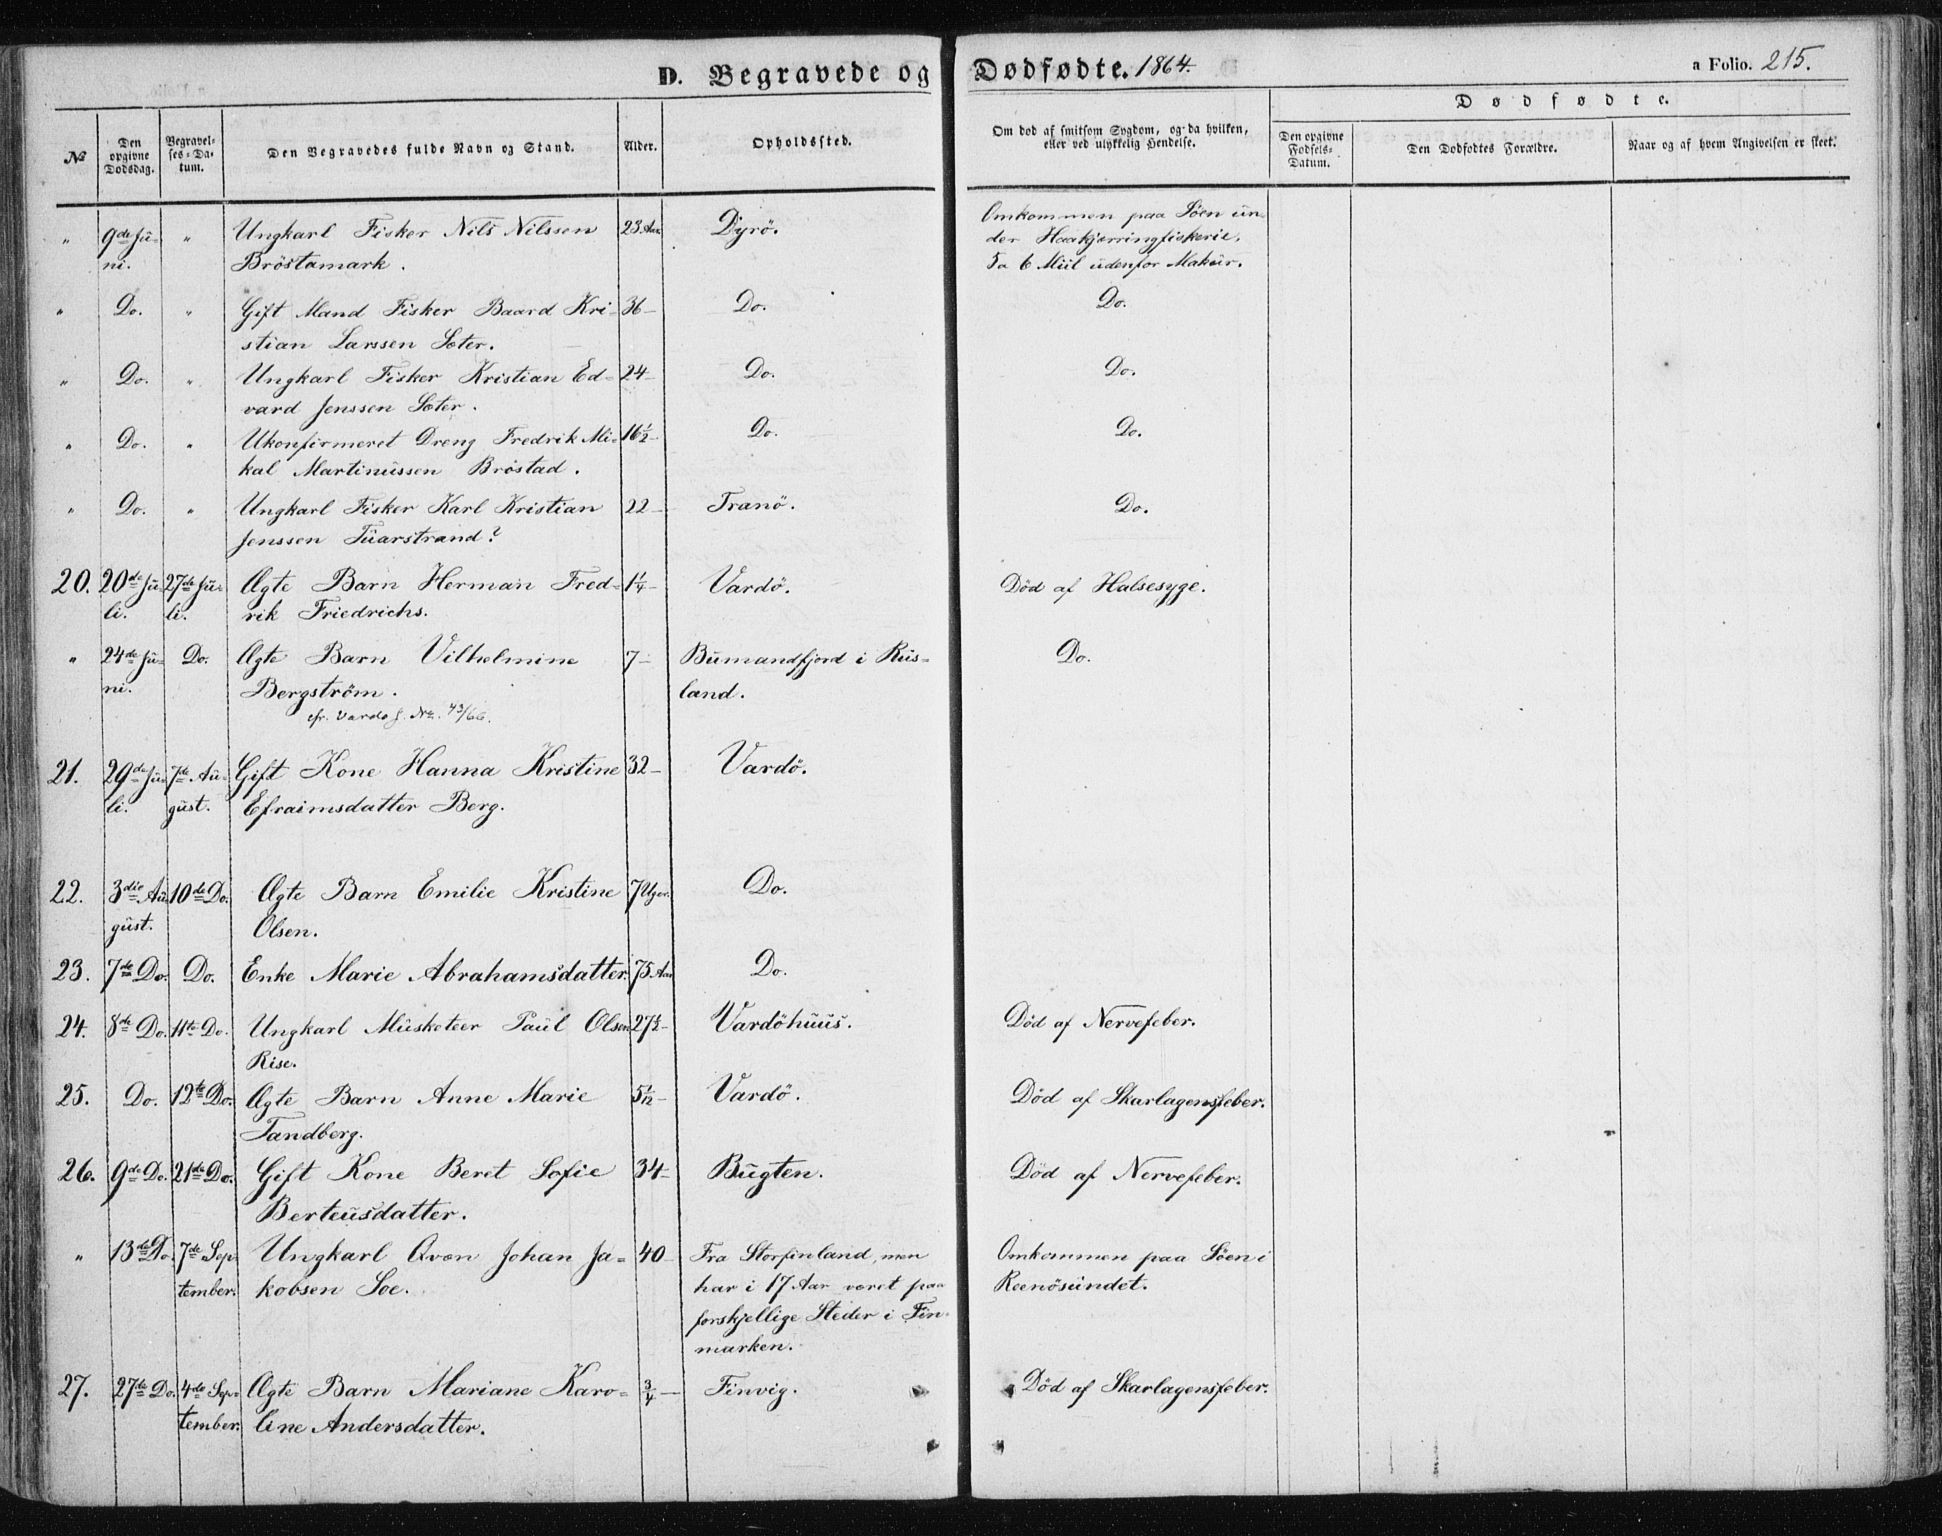 D. Begravede og Dødfødte. 1864.
a Folio. 215.
No
Den opgivne Dødsdag.
Begravelses-Datum.
Den Begravedes fulde Navn og Stand.
Alder.
Opholdssted.
Om død af smitsom Sygdom, og da hvilken, eller ved ulykkelig Hendelse.
Dødfødte.
Den opgivne Fødsels-Datum.
Den Dødfødtes Forældre.
Naar og af hvem Angivelsen er skeet.
" 9de Ju- " Ungkarl Fisker Nils Nilssen 23. Aar Dyrö. Omkommen paa Söen un-
ni. Bröstamark. der Haakjærringfiskerie,
5 a 6 Miil udenfor Makur.
" Do. " Gift Mand Fisker Baard Kri- 36 – Do. Do.
stian Larssen Sæter.
" Do. " Ungkarl Fisker Kristian Ed- 24 – Do. Do.
vard Jenssen Sæter.
" Do. " Ukonfirmeret Dreng Fredrik Mi- 16½ – Do. Do.
kal Martinussen Bröstad.
" Do. " Ungkarl Fisker Karl Kristian 22 – Tranö. Do.
Jenssen Tuarstrand?
20. 20de Ju- 27de Ju- Ægte Barn Herman Fred- 1¼ – Vardö. Död af Halsesyge.
li. li. rik Friedrichs.
" 24de Ju- Do. Ægte Barn Vilhelmine 7 – Bumandfjord i Rus- Do.
ni. Bergström. land.
cfr. Vardø f. No. 43/66.
21. 29de Ju- 7de Au- Gift Kone Hanna Kristine 32 – Vardö.
li. gust. Efraimsdatter Berg.
22. 3die Au- 10de Do. Ægte Barn Emilie Kristine 7 Uger. Do.
gust. Olsen.
23. 7de Do. Do. Enke Marie Abrahamsdatter. 75. Aar Do.
24. 8de Do. 11te Do. Ungkarl Musketeer Paul Olsen 27½ – Vardöhuus. Död af Nervefeber.
Rise.
25. Do. 12te Do. Ægte Barn Anne Marie 5/12 – Vardö. Död af Skarlagensfeber.
Tandberg.
26. 9de Do. 21de Do. Gift Kone Beret Sofie 34 – Bugten. Död af Nervefeber.
Berteusdatter.
" 13de Do. 7de Sep- Ungkarl Qvæn Johan Ja- 40 – Fra Storfinland, men Omkommen paa Söen i
tember. kobsen Soe. har i 17 Aar været paa Reenösundet.
forskjellige Steder i Fin-
marken.
27. 27de Do. 4de Sep- Ægte Barn Mariane Karo- ¾ – Finvig. Död af Skarlagensfeber.
tember. line Andersdatter.